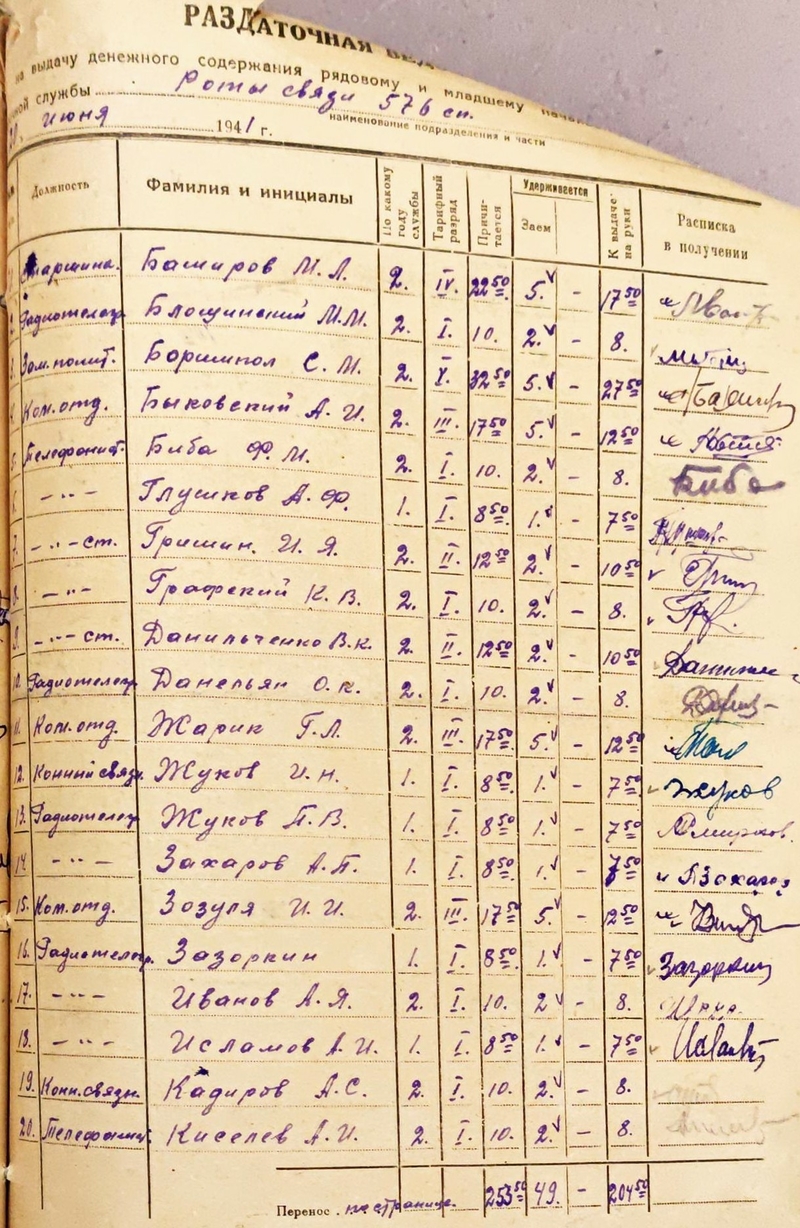 РАЗДАТОЧНАЯ
на выдачу денежного содержания рядовому и младшему
службы Роты связи 576 сп.
наименование подразделения и части
июня 1941 г.
Должность Фамилия и инициалы По какому году службы Тарифный разряд Причитается Удерживается Заем К выдаче на руки Расписка в получении
Старшина. Баширов М. Л. 2. IV. 22 50 5. – 17 50
Радиотелегр. Блощинский М.М. 2. I. 10. 2. – 8.
3. Зам. полит. Боришпол С. М. 2. V. 32 50 5. – 27 50
4. Ком. отд. Быковский А. И. 2. III. 17 50 5. – 12 50
5. Телефонист. Биба Ф. М. 2. I. 10. 2. – 8. Биба
6. – " – Глушков А. Ф. 1. I. 8 50 1. – 7 50
7. – " – ст. Гришин. И. Я. 2. II. 12 50 2. – 10 50
8. – " – Графский К. В. 2. I. 10. 2. – 8.
9. – " – ст. Данильченко В.К. 2. II. 12 50 2. – 10 50
10. Радиотелегр. Данельян О. К. 2. I. 10. 2. – 8.
11. Ком. отд. Жарик Г. Л. 2. III. 17 50 5. – 12 50
12. Конный связн. Жуков И. Н. 1. I. 8 50 1. – 7 50 Жуков
13. Радиотелегр. Жуков П. В. 1. I. 8 50 1. – 7 50
14. – " – Захаров А. П. 1. I. 8 50 1. – 7 50
15. Ком. отд. Зозуля И. И. 2. III. 17 50 5. – 12 50
16. Радиотелегр. Зазоркин 1. I. 8 50 1. – 7 50 Зазоркин
17. – " – Иванов А. Я. 2. I. 10. 2 – 8.
18. – " – Исламов А. И. 1. I. 8 50 1. – 7 50
19. Конн. связн. Кадиров А. С. 2. I. 10. 2. – 8.
20. Телефонист. Киселев А. И. 2. I. 10. 2. – 8.
Перенос. на странице. 253 50 49. – 204 50